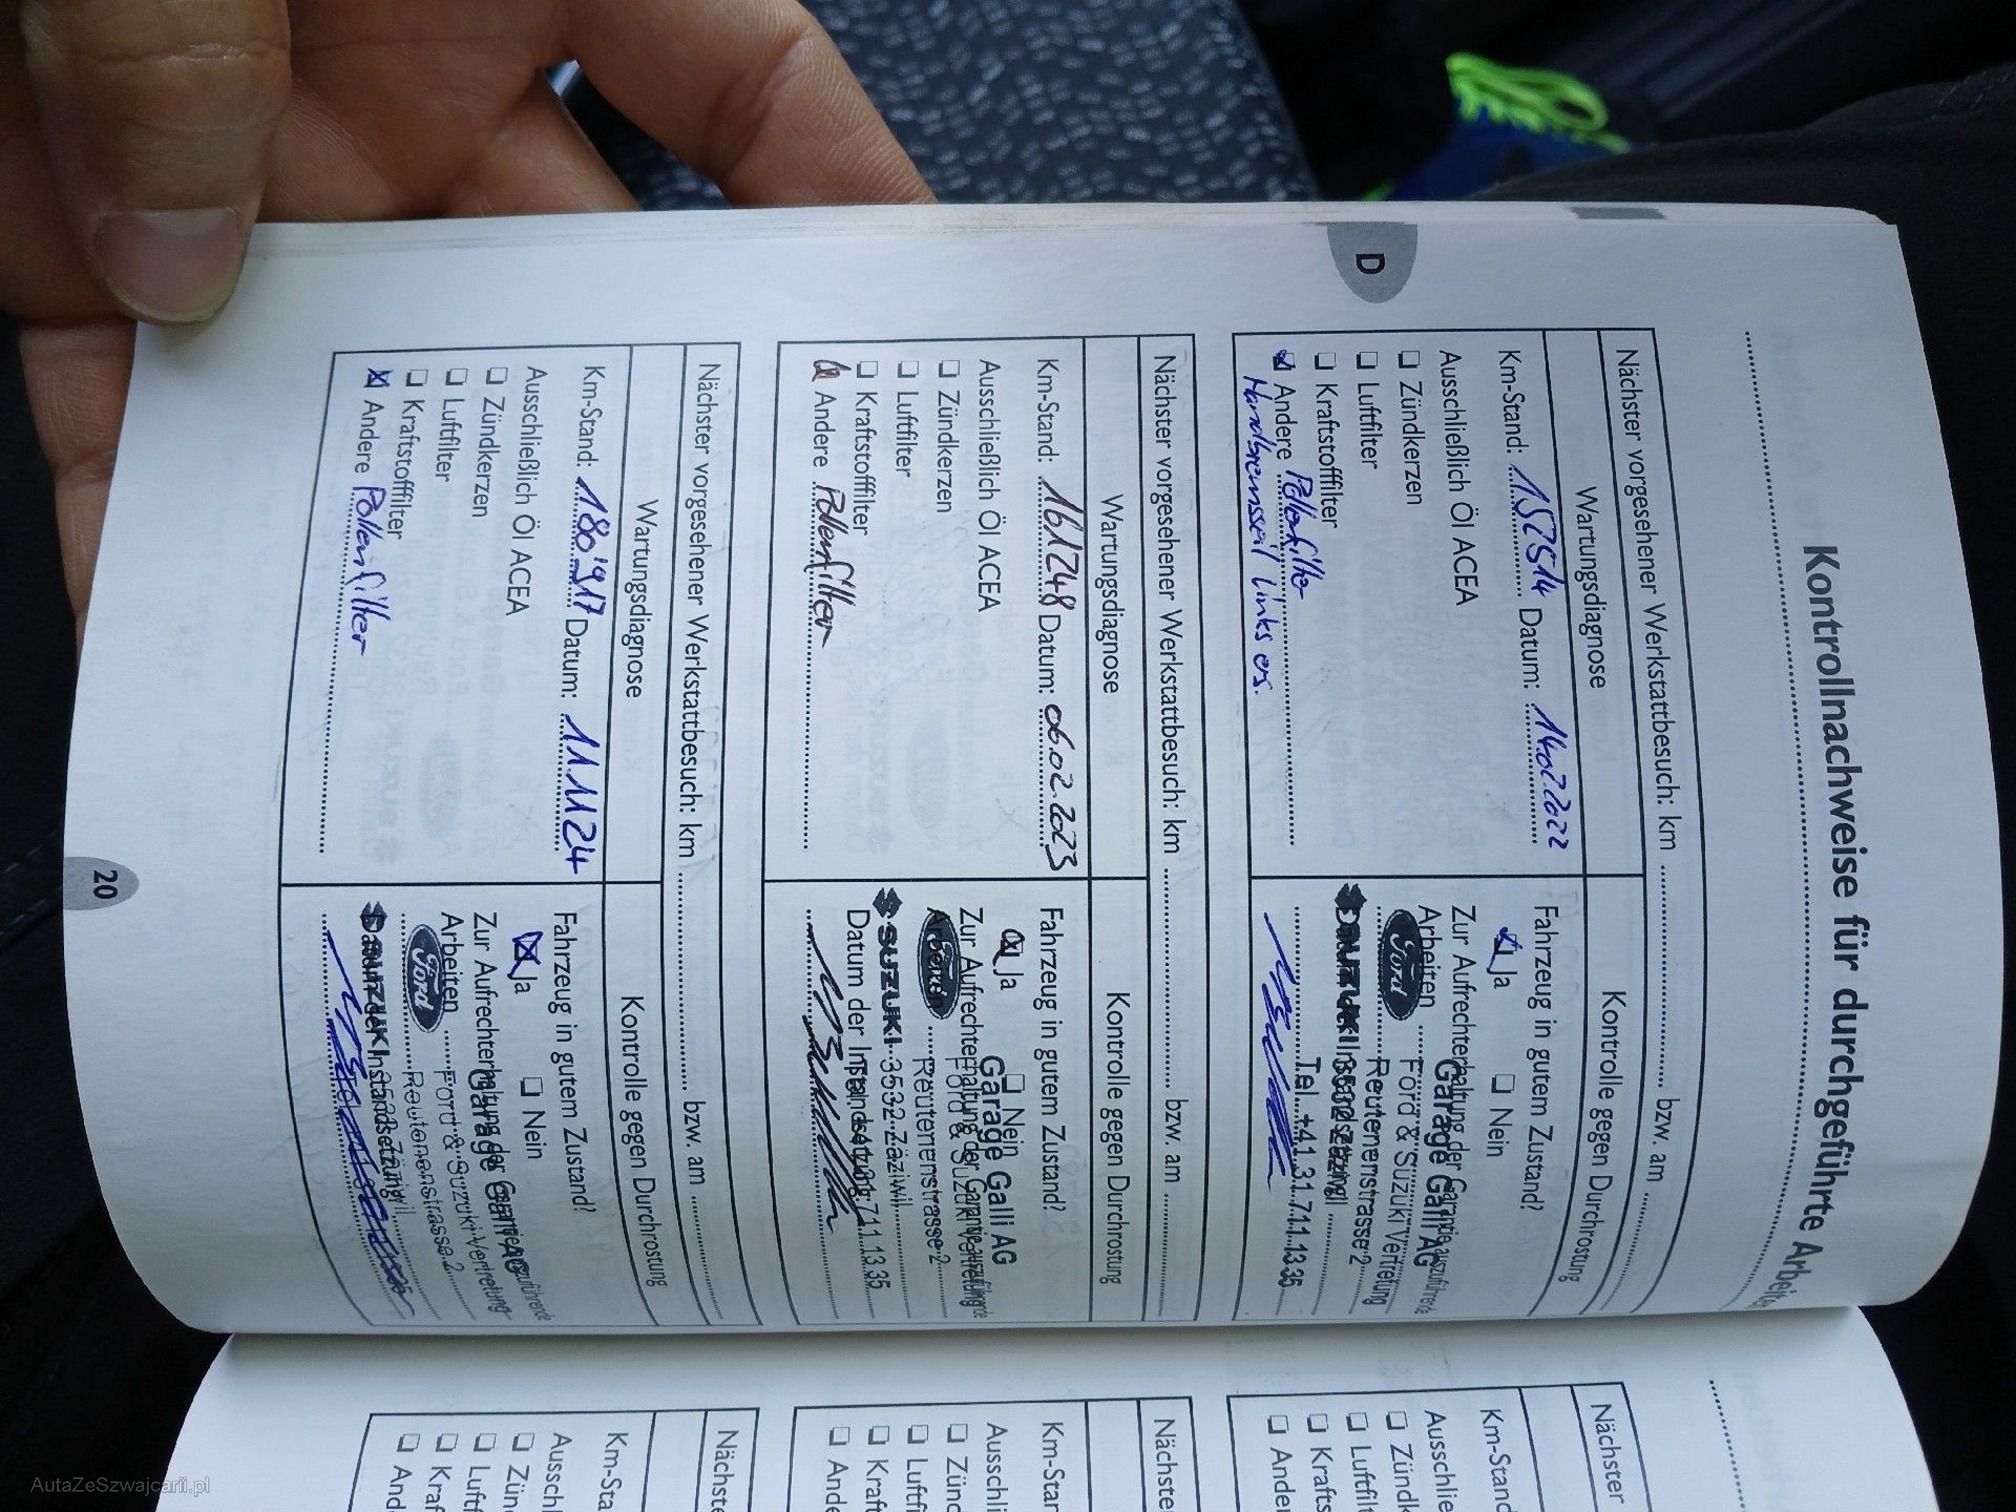 D
Kontrollnachweise für durchgeführte Arbeiten
Nächster vorgesehener Werkstattbesuch: km bzw. am
Wartungsdiagnose
Kontrolle gegen Durchrostung
Km-Stand: 152514 Datum: 14.02.2022
Ausschließlich Öl ACEA
❑ Zündkerzen
❑ Luftfilter
❑ Kraftstofffilter
☑ Andere Pollenfilter
Handbremsseil links ers.
Fahrzeug in gutem Zustand?
☑ Ja ❑ Nein
Zur Aufrechterhaltung der Garantie auszuführende
Arbeiten
Garage Galli AG
Ford
Ford & Suzuki Vertretung
Reutenenstrasse 2
SUZUKI 3532 Zäziwil
Datum der Instandsetzung:
Tel. +41 31 711 13 35
Nächster vorgesehener Werkstattbesuch: km bzw. am
Wartungsdiagnose
Kontrolle gegen Durchrostung
Km-Stand: 161'248 Datum: 06.02.2023
Ausschließlich Öl ACEA
❑ Zündkerzen
❑ Luftfilter
❑ Kraftstofffilter
☒ Andere Pollenfilter
Fahrzeug in gutem Zustand?
☒ Ja ❑ Nein
Garage Galli AG
Zur Aufrechterhaltung der Garantie auszuführende
Arbeiten
Ford
Ford & Suzuki Vertretung
Reutenenstrasse 2
SUZUKI 3532 Zäziwil
Datum der Instandsetzung:
Tel. +41 31 711 13 35
Nächster vorgesehener Werkstattbesuch: km bzw. am
Wartungsdiagnose
Kontrolle gegen Durchrostung
Km-Stand: 180'917 Datum: 11.11.24
Ausschließlich Öl ACEA
❑ Zündkerzen
❑ Luftfilter
❑ Kraftstofffilter
☒ Andere Pollenfilter
Fahrzeug in gutem Zustand?
☒ Ja ❑ Nein
Zur Aufrechterhaltung der Garantie auszuführende
Arbeiten
Garage Galli AG
Ford
Ford & Suzuki Vertretung
Reutenenstrasse 2
SUZUKI 3532 Zäziwil
Datum der Instandsetzung:
20
Nächster
Km-Stand
Ausschließ
❑ Zündk
❑ Luftfilt
❑ Krafts
❑ Ander
Nächste
Km-Star
Ausschli
❑ Zünd
❑ Luftf
❑ Kraf
❑ Ande
Nächst
Km-Sta
Aussch
❑ Zün
❑ Luft
❑ Kraf
❑ And
AutaZeSzwajcarii.pl